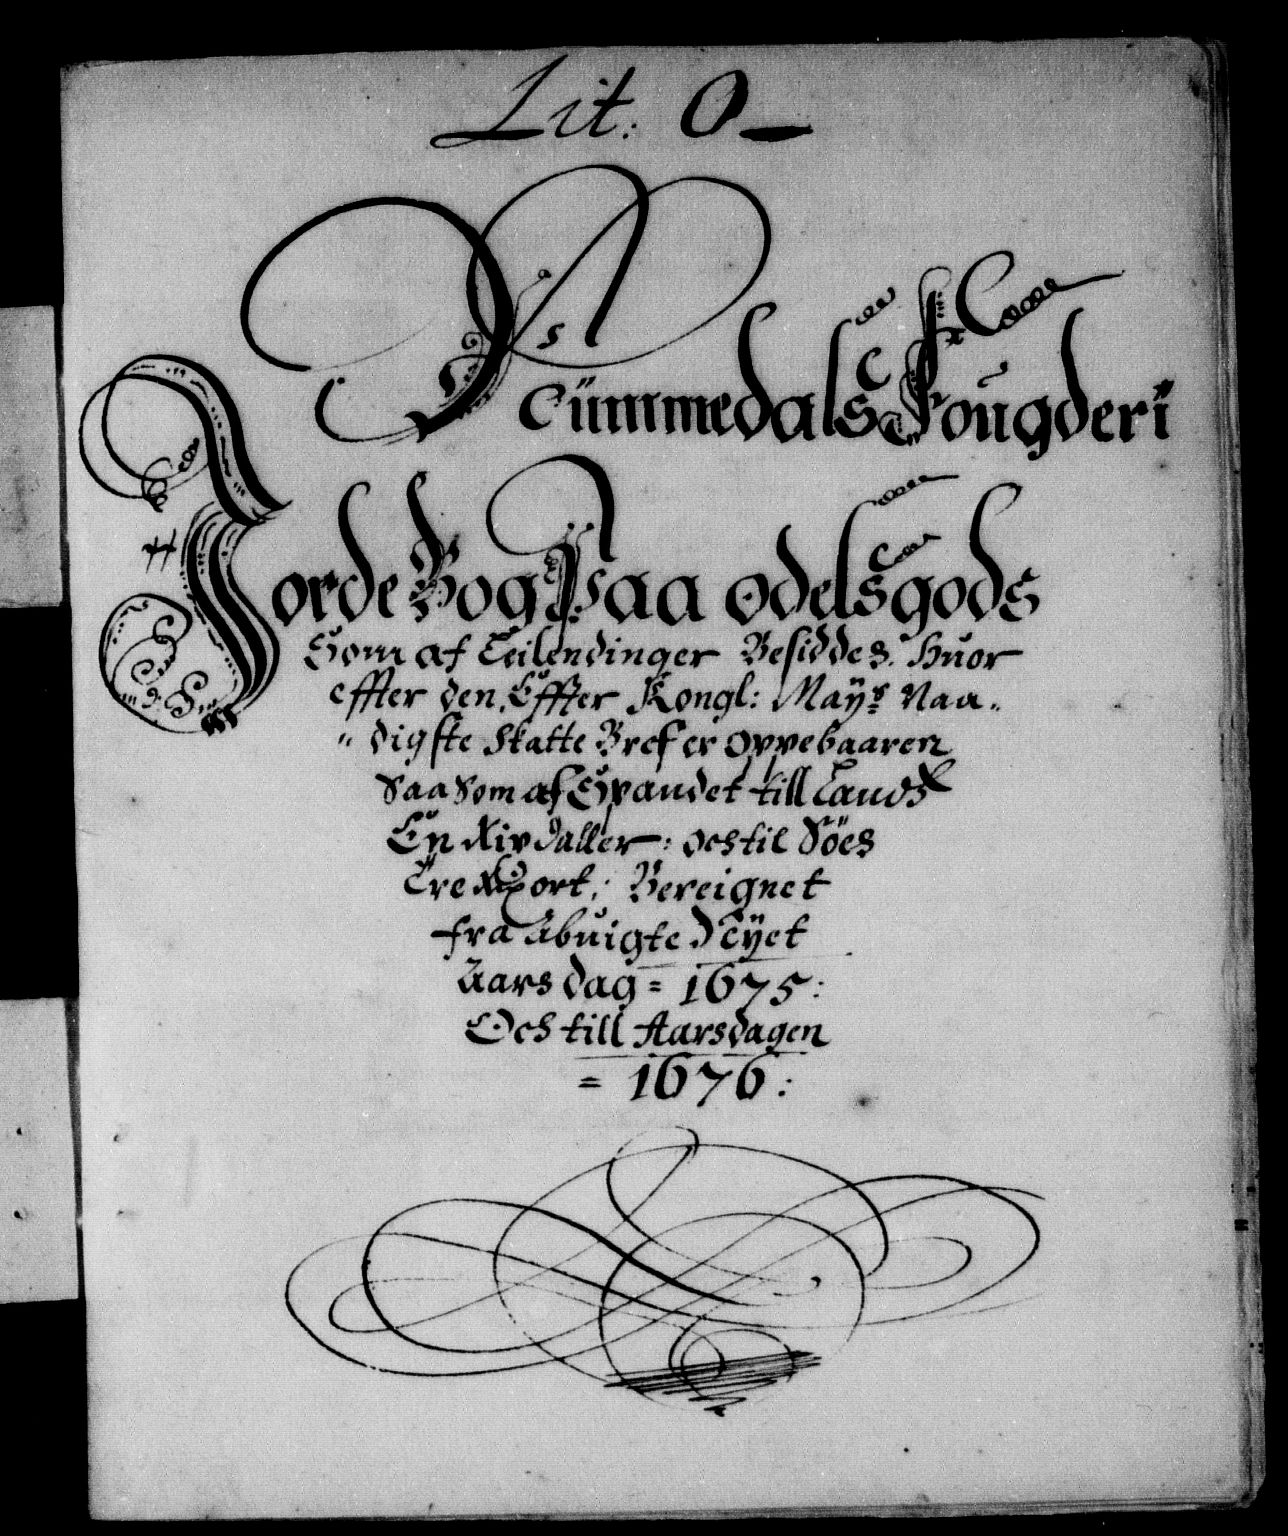 Lit: O
Nümmedals Fougderi
Jorde Bog Paa odelsgods
Som af Teilendinger Besiddes. Huor
effter den, Effter Kongl: Mayts Naa„
„digste Skatte Bref er oppebaaren
Saa Som af Spandet till Lands
En Rix daller: och til Söes
Tre Rix ort; Bereignet
fra Nÿet
Aars dag = 1675:
Och till Aarsdagen
= 1676: